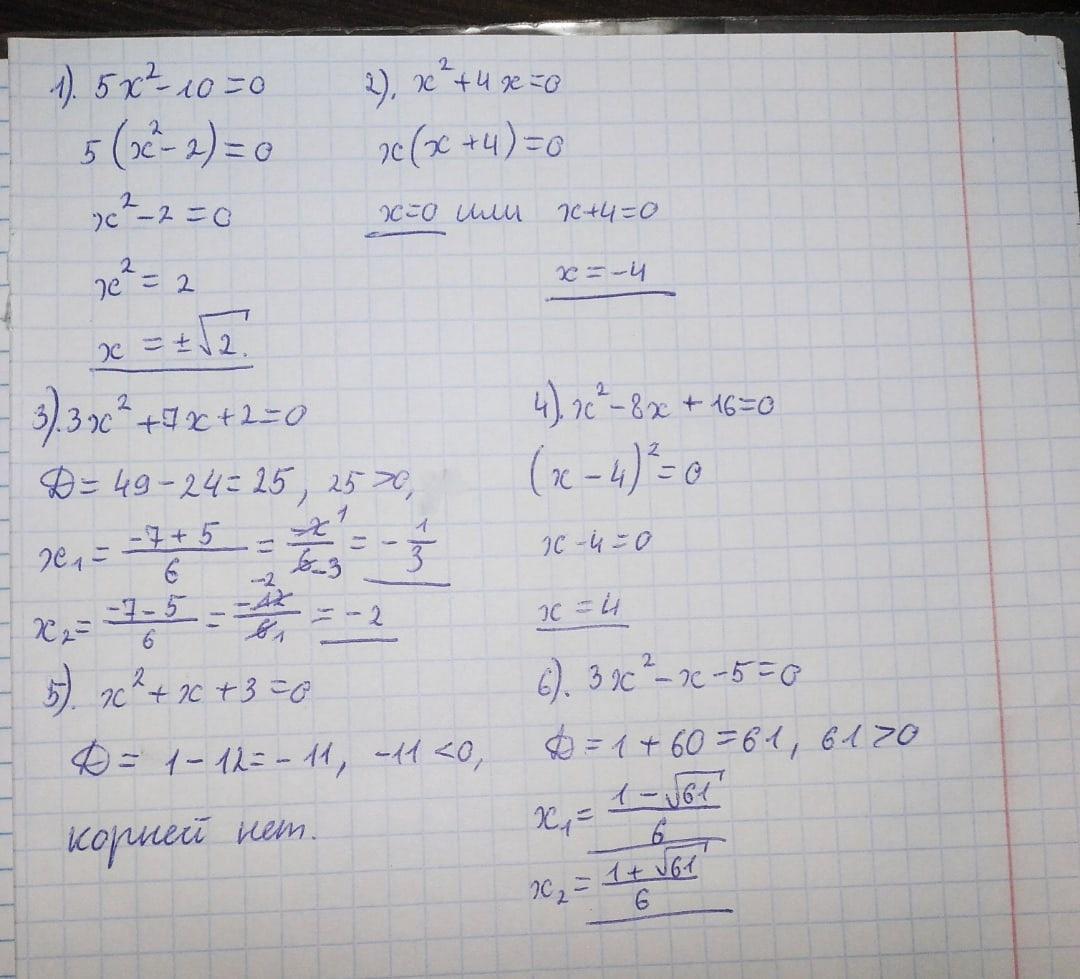 1). 5x² - 10 = 0
5(x² - 2) = 0
x² - 2 = 0
x² = 2
x = ±√2.
2). x² + 4x = 0
x(x + 4) = 0
x = 0 или x + 4 = 0
x = -4
3). 3x² + 7x + 2 = 0
D = 49 - 24 = 25, 25 > 0,
x₁ = (-7 + 5)/6 = -2/6 = -1/3
x₂ = (-7 - 5)/6 = -12/6 = -2
4). x² - 8x + 16 = 0
(x - 4)² = 0
x - 4 = 0
x = 4
5). x² + x + 3 = 0
D = 1 - 12 = -11, -11 < 0,
корней нет.
6). 3x² - x - 5 = 0
D = 1 + 60 = 61, 61 > 0
x₁ = (1 - √61)/6
x₂ = (1 + √61)/6